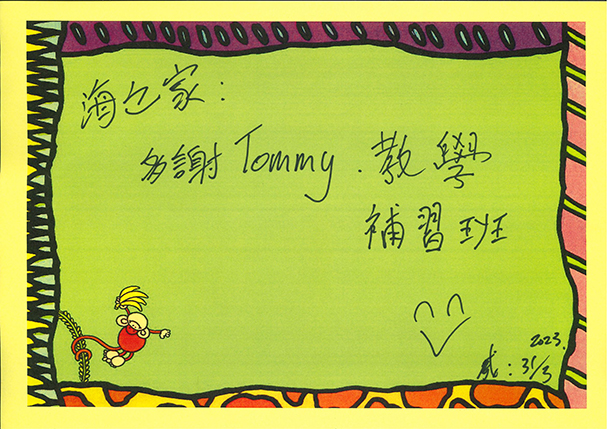 海之家：
多謝 Tommy. 教學
補習班
2023.
威：31/3